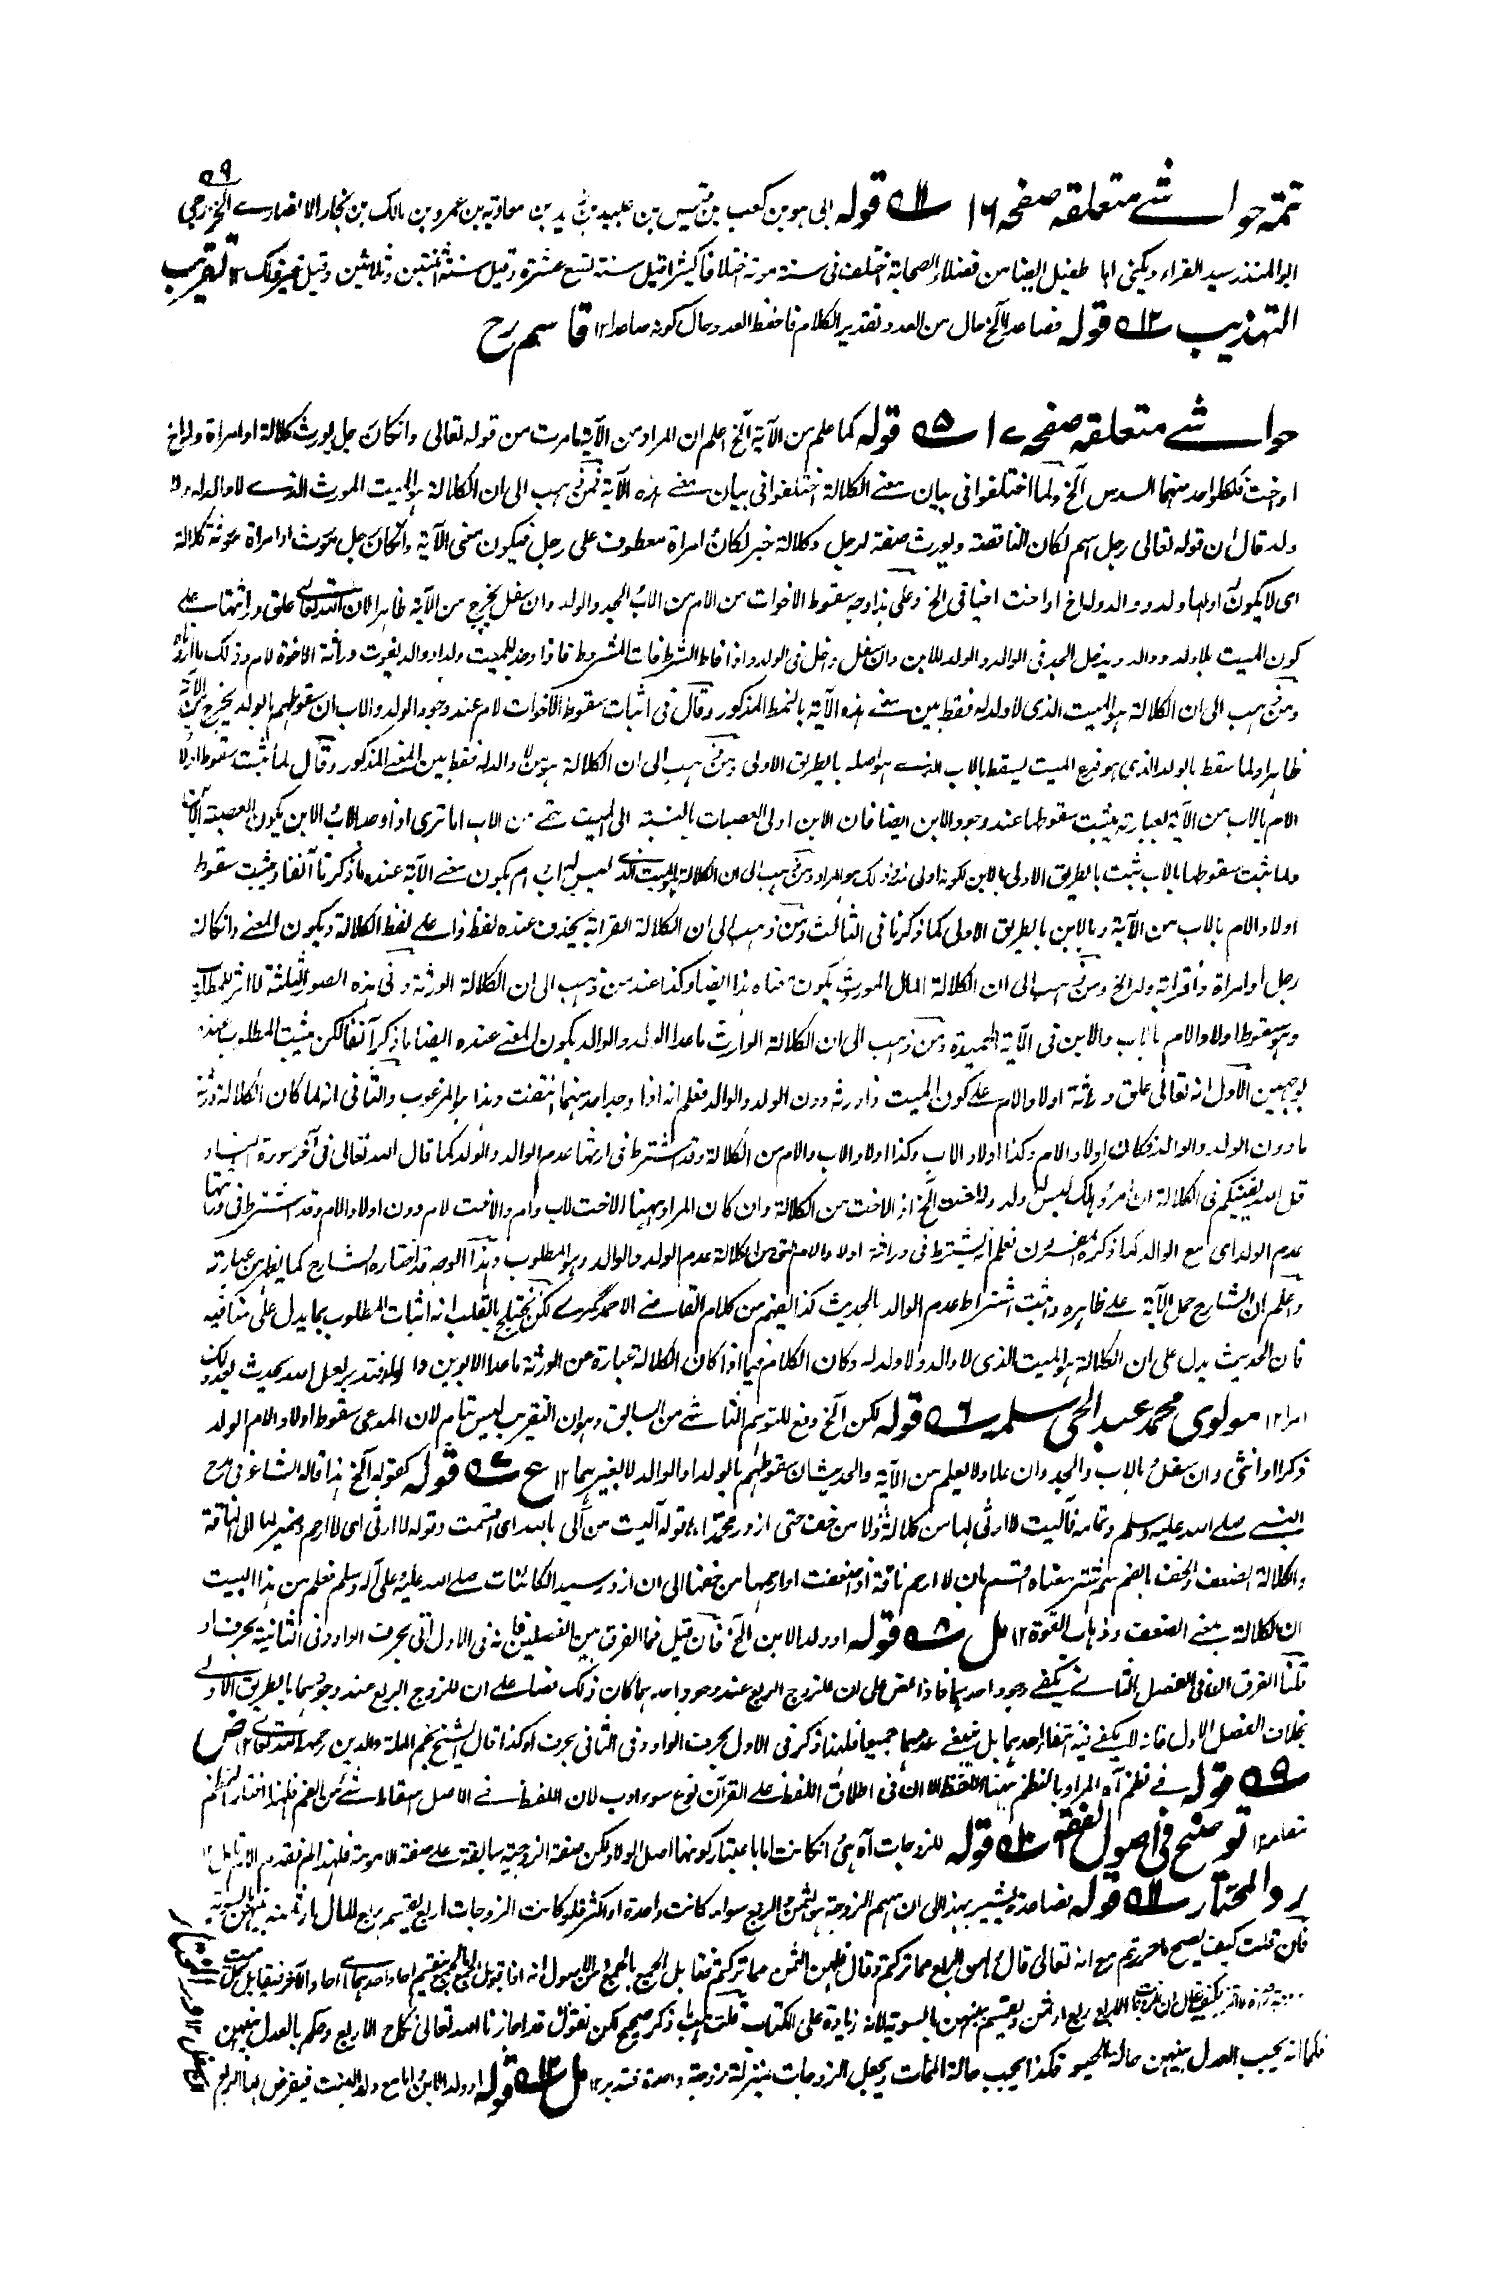 ۵۹
تتمہ حواشے متعلقہ صفحہ ۱۶ ۱۱ قولہ ابی ہو بن کعب بن قیس بن عبید بن زید بن معاویة بن عمرو بن مالک بن نجار الانصارے الخزرجی
ابو المنذر سید القراء ویکنی ابا طفیل ایضا من فضلاء الصحابة اختلف فی سنة موتہ اختلافا کثیرا قیل سنة تسع عشرة وقیل سنة اثنتین وثلاثین وقیل غیر ذلک ۱۲ تقریب
التہذیب ۱۲ قولہ فصاعدا الخ حال من العدد وتقدیر الکلام فاحفظ العدد حال کونہ صاعدا ۱۲ قاسم رح
حواشے متعلقہ صفحہ ۱۷ ۵ قولہ کما علم من الآیة الخ اعلم ان المراد من الآیة ما مرت من قولہ تعالی وان کان رجل یورث کلالة او امراة ولہ اخ
او اخت فلکل واحد منہما السدس الخ ولما اختلفوا فی بیان معنے الکلالة اختلفوا فی بیان معنے ہذہ الآیة فمن ذہب الی ان الکلالة ہو المیت المورث الذے لا والد لہ ولا
ولد قال ان قولہ تعالی رجل اسم لکان الناقصة ویورث صفة لرجل وکلالة خبر لکان وامراة معطوف علی رجل فیکون معنی الآیة وان کان رجل یورث او امراة یورث کلالة
ای لا یکون لہ او لہا ولد ووالد ولہ اخ او اخت اخیافی الخ وعلی ہذا وجہ سقوط الاخوات من الام من الاب الجد والولد وان سفل یخرج من الآیة ظاہرا لان اللہ تعالے علق وراثتہا علے
کون المیت بلا ولد ووالد ویدخل الجد فی الوالد والولد للابن وان سفل داخل فی الولد واذا فات الشرط فات المشروط فاذا وجد للمیت ولد او والد یفوت وراثة الاخوة لام وذلک ما اردناہ
ومن ذہب الی ان الکلالة ہو المیت الذی لا ولد لہ فقط بین معنے ہذہ الآیة بالنمط المذکور وقال فی اثبات سقوط الاخوات لام عند وجود الولد والاب ان سقوطہم بالولد یخرج من الآیة
ظاہرا ولما سقط بالولد الذی ہو فرع المیت یسقط بالاب الذے ہو اصلہ بالطریق الاولی ومن ذہب الی ان الکلالة ہو من لا والد لہ فقط بین المعنے المذکور وقال لما ثبت سقوط اولاد
الام بالاب من الآیة بعبارتہ یثبت سقوطہا عند وجود الابن ایضا فان الابن اولی العصبات بالنسبة الی المیت حتے من الاب اما تری اذا وجد الاب الابن یکون العصبة الابن
ولما ثبت سقوطہا بالاب ثبت بالطریق الاولی بالابن لکونہ اولی من ذلک ہو المراد ومن ذہب الی ان الکلالة المیت الذے لیس لہ اب ام یکون معنے الآیة عندہ ما ذکرنا آنفا ویثبت سقوط
اولاد الام بالاب من الآیة وبالابن بالطریق الاولی کما ذکرنا فی الثالث ومن ذہب الی ان الکلالة القرابة یحذف عندہ لفظ ذا علے لفظ الکلالة ویکون المعنے وان کان
رجل او امراة ذا قرابة ولہ الخ ومن ذہب الی ان الکلالة المال الموروث یکون معناہ ہذا ایضا وکذا عند من ذہب الی ان الکلالة الورثة وفی ہذہ الصور الثلثة لا اثر للمطلوب
وہو سقوط اولاد الام بالاب والابن فی الآیة الحمیدة ومن ذہب الی ان الکلالة الوارث ما عدا الولد والوالد یکون المعنے عندہ ایضا ما ذکر آنفا لکن یثبت المطلوب عندہ
بوجہین الاول انہ تعالی علق وراثة اولاد الام علے کون المیت ذا ورثة دون الولد والوالد فعلم انہ اذا وجد احد منہما انتفت وہذا ہو المرغوب والثانی انہ لما کان الکلالة ورثة
ما دون الولد والوالد فکان اولاد الام وکذا اولاد الاب وکذا اولاد الاب والام من الکلالة وقد اشترط فی ارثہا عدم الوالد والولد کما قال اللہ تعالی فی آخر سورة النساء
قل اللہ یفتیکم فی الکلالة ان امرؤ ہلک لیس لہ ولد ولہ اخت الخ اذ الاخت من الکلالة وان کان المراد ہہنا الاخت لاب وام والاخت لاب دون اولاد الام وقد اشترط فی وراثتہا
عدم الولد ای مع الوالد کما ذکرہ المفسرون فعلم انہ یشترط فی وراثة اولاد الام التی من الکلالة عدم الولد والوالد وہو المطلوب وہذا الوجہ قد اختارہ الشارح کما یظہر من عبارتہ
واعلم ان الشارح حمل الآیة علے ظاہرہ واثبت اشتراط عدم الوالد بالحدیث کذا یفہم من کلام القاضے الاحمدنگرے لکن یختلج بالقلب انہ اثبات المطلوب بما یدل علی منافیہ
فان الحدیث یدل علی ان الکلالة ہو المیت الذی لا والد ولا ولد لہ وکان الکلام فیما اذا کان الکلالة عبارة عن الورثة ما عدا الابوین والولد فتدبر لعل اللہ یحدث بعد ذلک
امرا ۱۲ مولوی محمد عبد الحی سلمہ ۶ قولہ لکن الخ دفع للتوہم الناشے من السابق وہو ان التقریب لیس بتام لان المدعی سقوط اولاد الام الولد
ذکرا او انثی وان سفل بالاب والجد وان علا ولا یعلم من الآیة والحدیث ان سقوطہم بالولد او الوالد لا بغیرہما ۱۲ ع ۷ قولہ کقولہ الخ ہذا قالہ الشاعر فی مدح
النبے صلے اللہ علیہ وسلم وتمامہ فآلیت لا ارثی لہا من کلالة ولا من خفی حتی ازور محمدا ۱۲ قولہ آلیت من آلی باللہ ای اقسمت وقولہ لا ارثی ای لا ارحم وضمیر لہا الی الناقة
والکلالة الضعف والخف بالضم سم شتر معناہ اقسم بان لا ارحم ناقة اذا ضعفت او ارحمہا من خفہا الی ان ازور سید الکائنات صلے اللہ علیہ وعلی آلہ وسلم فعلم من ہذا البیت
ان الکلالة بمعنے الضعف وذہاب القوة ۱۲ مل ۸ قولہ او ولد الابن الخ فان قیل فما الفرق بین الفصلین فانہ فی الاول اتی بحرف الواو وفی الثانیة بحرف او
قلنا الفرق ان فی الفصل الثانے یکفے وجود احدہما فاذا نص علی ان للزوج الربع عند وجود احدہما کان ذلک نصا علے ان للزوج الربع عند وجودہما بالطریق الاولے
بخلاف الفصل الاول فانہ لا یکفے فیہ انتفاء احدہما بل ینبغے عدمہما جمیعا فلہذا ذکر فی الاول بحرف الواو وفی الثانی بحرف او کذا قال الشیخ نجم الملة والدین رحمہ اللہ تعالے ۱۲ ض
۹ قولہ فے نظم آہ المراد بالنظم ہہنا اللفظ الا ان فی اطلاق اللفظ علے القرآن نوع سوء ادب لان اللفظ فے الاصل اسقاط شئ من الفم فلہذا اختار النظم
مقامہ ۱۲ توضیح فی اصول الفقہ ۱۰ قولہ للزوجات آہ ہی ان کانت اما باعتبار کونہا اصل الولاد لکن صفة الزوجیة سابقة علے صفة الامومة فلہذا لم یقدم الام تامل ۱۲
رد المحتار ۱۱ قولہ فصاعدة یشیر بہذا الی ان سہم الزوجة ہو الثمن والربع سواء کانت واحدة او اکثر فلو کانت الزوجات اربع یقسم ربع المال او ثمنہ بینہن بالسویة
فان قلت کیف یصح ہذا مع انہ تعالی قال ولہن الربع مما ترکتم وقال فلہن الثمن مما ترکتم فقابل الجمع بالجمع ومن الاصول انہ اذا قوبل الجمع بالجمع ینقسم احاد احدہما علے احاد الآخر فیقابل کل
ربع او ثمن ویقسم بینہن بالسویة لانہ زیادة علی الکتاب قلت ما ذکر صحیح لکن نقول قد اجاز اللہ تعالی نکاح الاربع وحکم بالعدل بینہن
فکما انہ یجب العدل بینہن حالة الحیوة فکذا یجب حالة الممات ویجعل الزوجات بمنزلة زوجة واحدة فتدبر ۱۲ مل ۱۲ قولہ او ولد الابن اما مع ولد البنت فیفرض لہا الربع